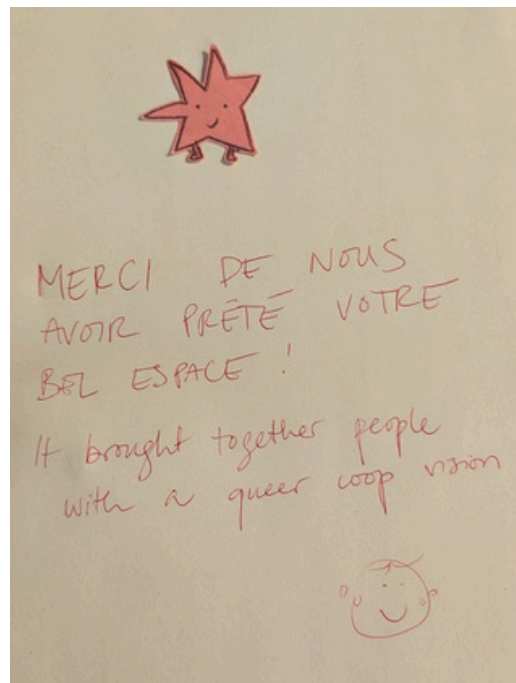 MERCI DE NOUS
AVOIR PRÊTÉ VOTRE
BEL ESPACE !
It brought together people
with a queer coop vision